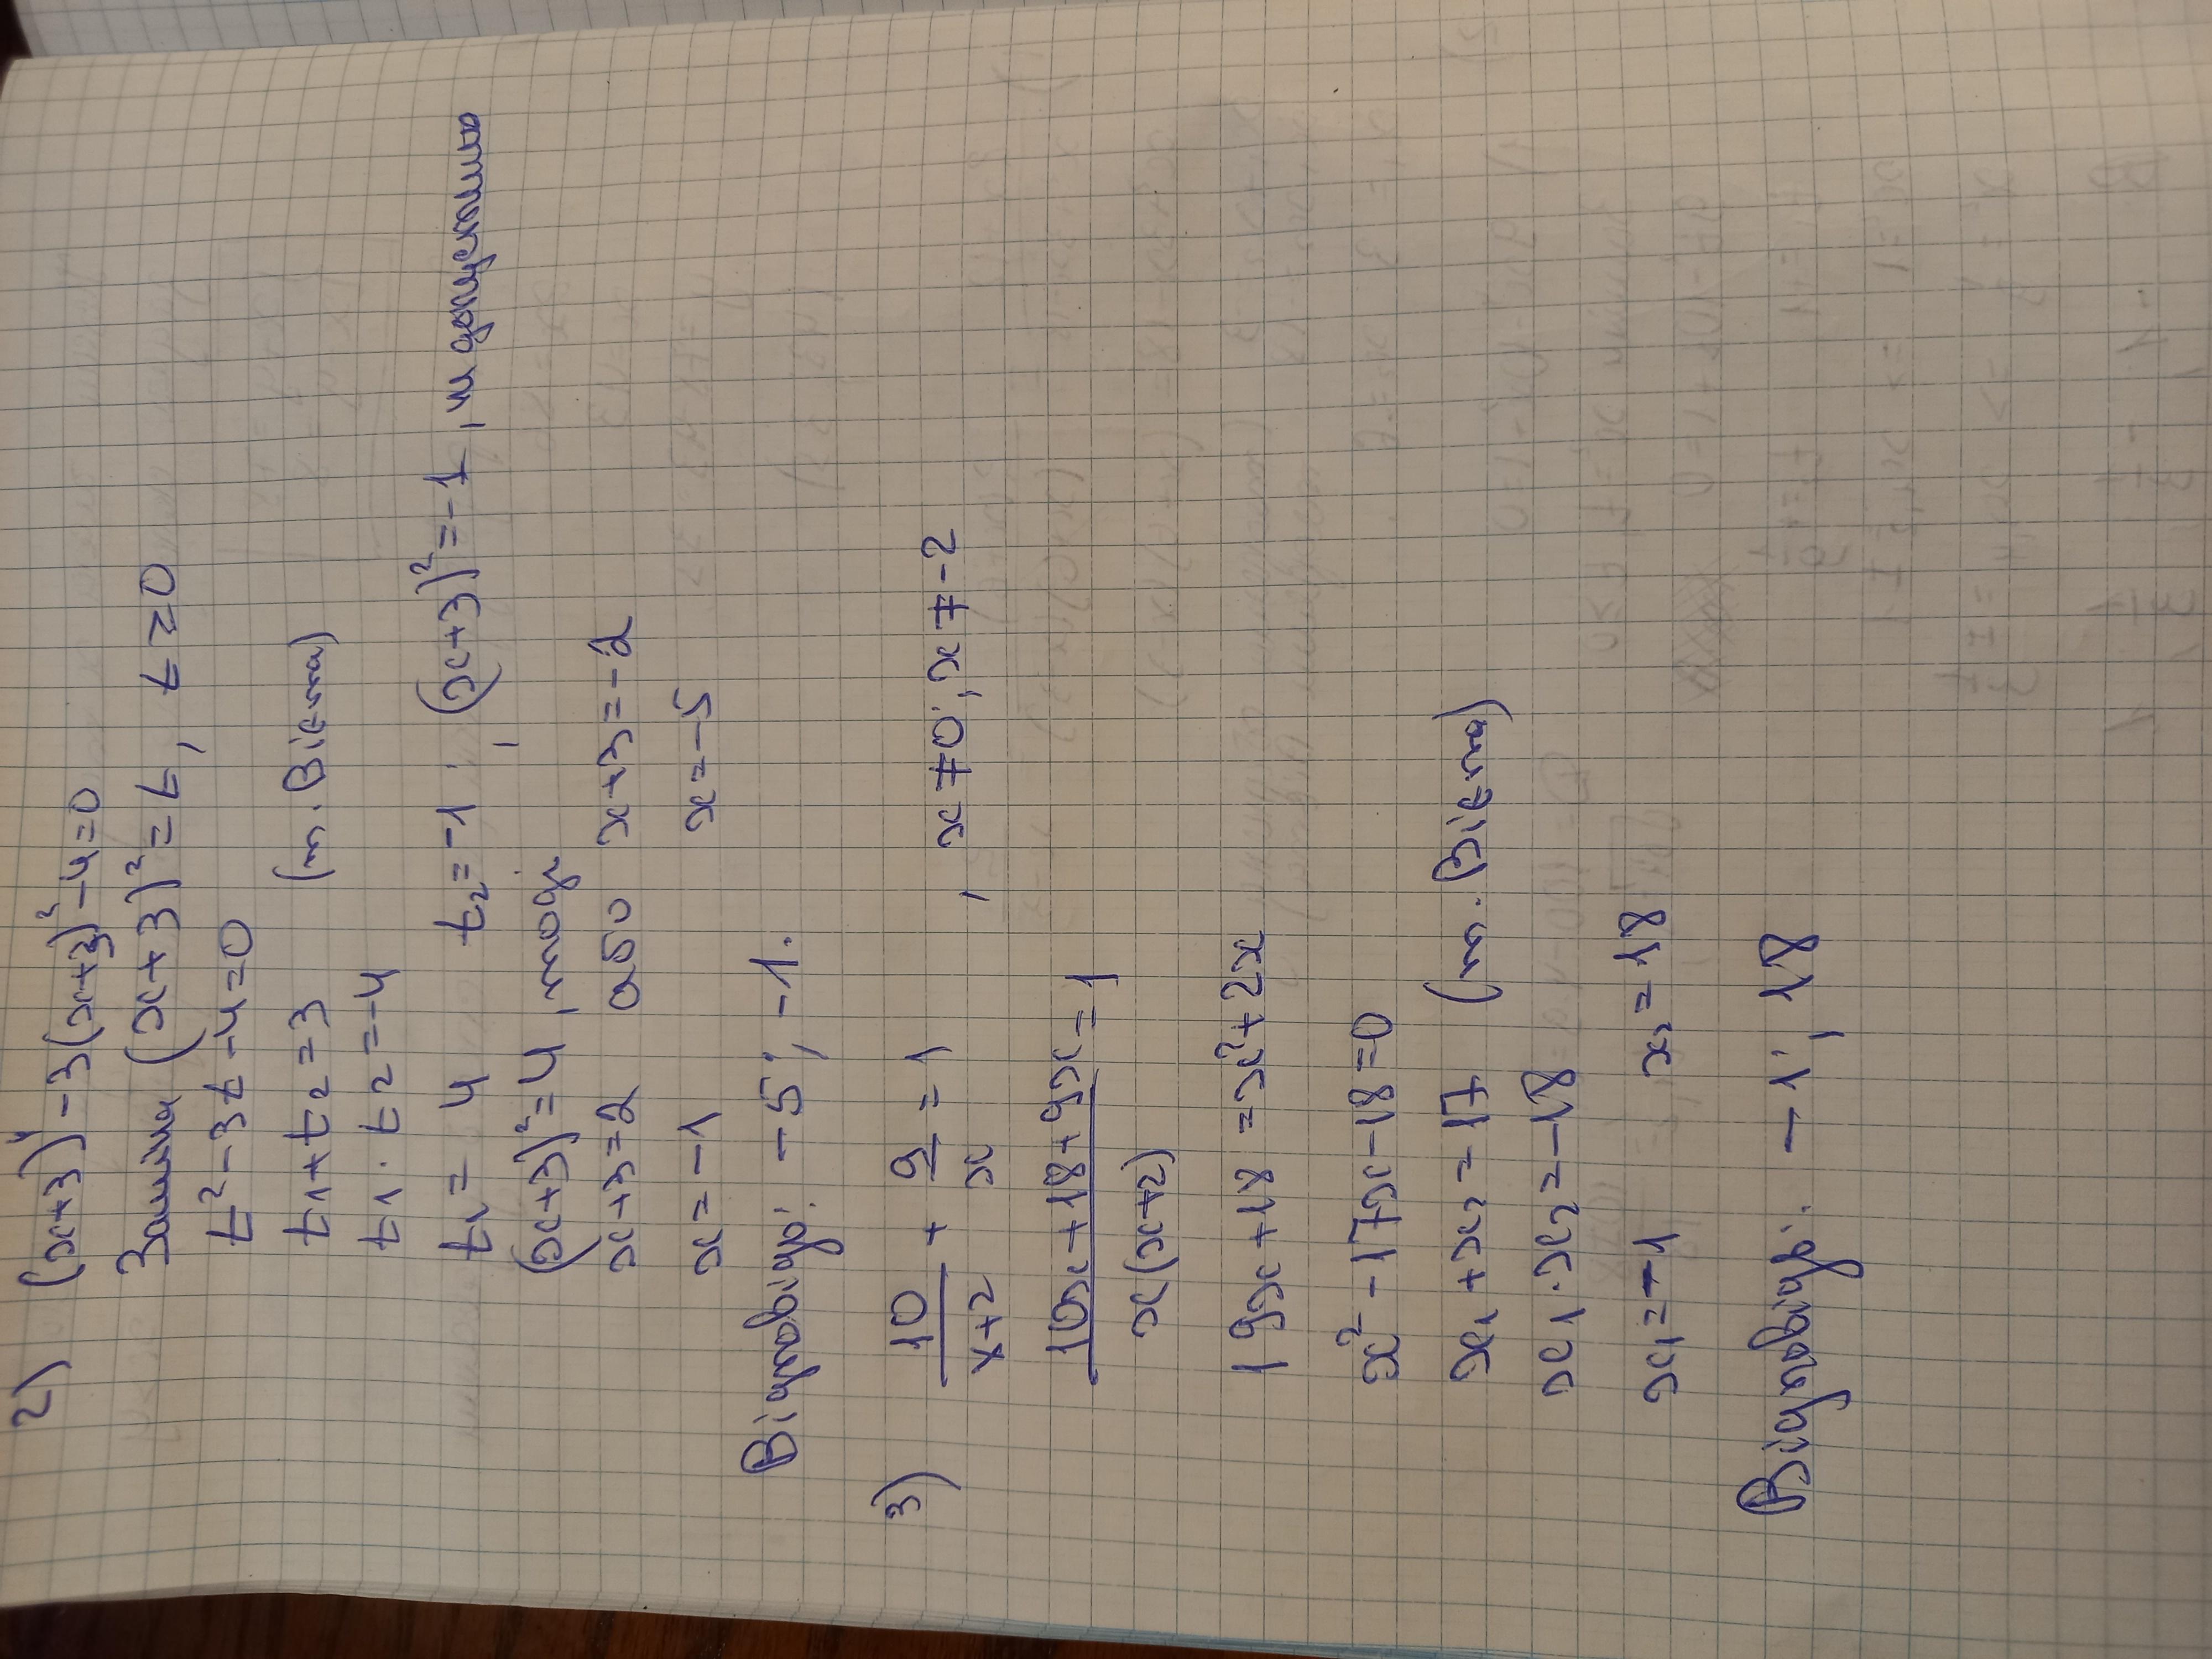 2) (x+3)⁴-3(x+3)²-4=0
Заміна (x+3)²=t, t≥0
t²-3t-4=0
t1+t2=3 (т. Вієта)
t1·t2=-4
t1=4 t2=-1; (x+3)²=-1, не допускається
(x+3)²=4, тоді
x+3=2 або x+3=-2
x=-1 x=-5
Відповідь: -5; -1.
3) 10/(x+2) + 9/x = 1, x≠0; x≠-2
(10x+18+9x)/(x(x+2))=1
19x+18=x²+2x
x²-17x-18=0
x1+x2=17 (т. Вієта)
x1·x2=-18
x1=-1 x2=18
Відповідь: -1; 18